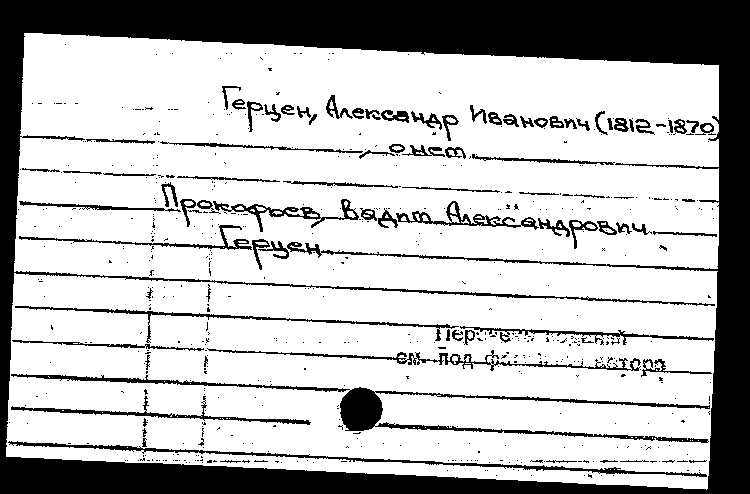 Герцен, Александр Иванович (1812-1870)
, о нем.
Прокофьев, Вадим Александрович
Герцен
см. под автора